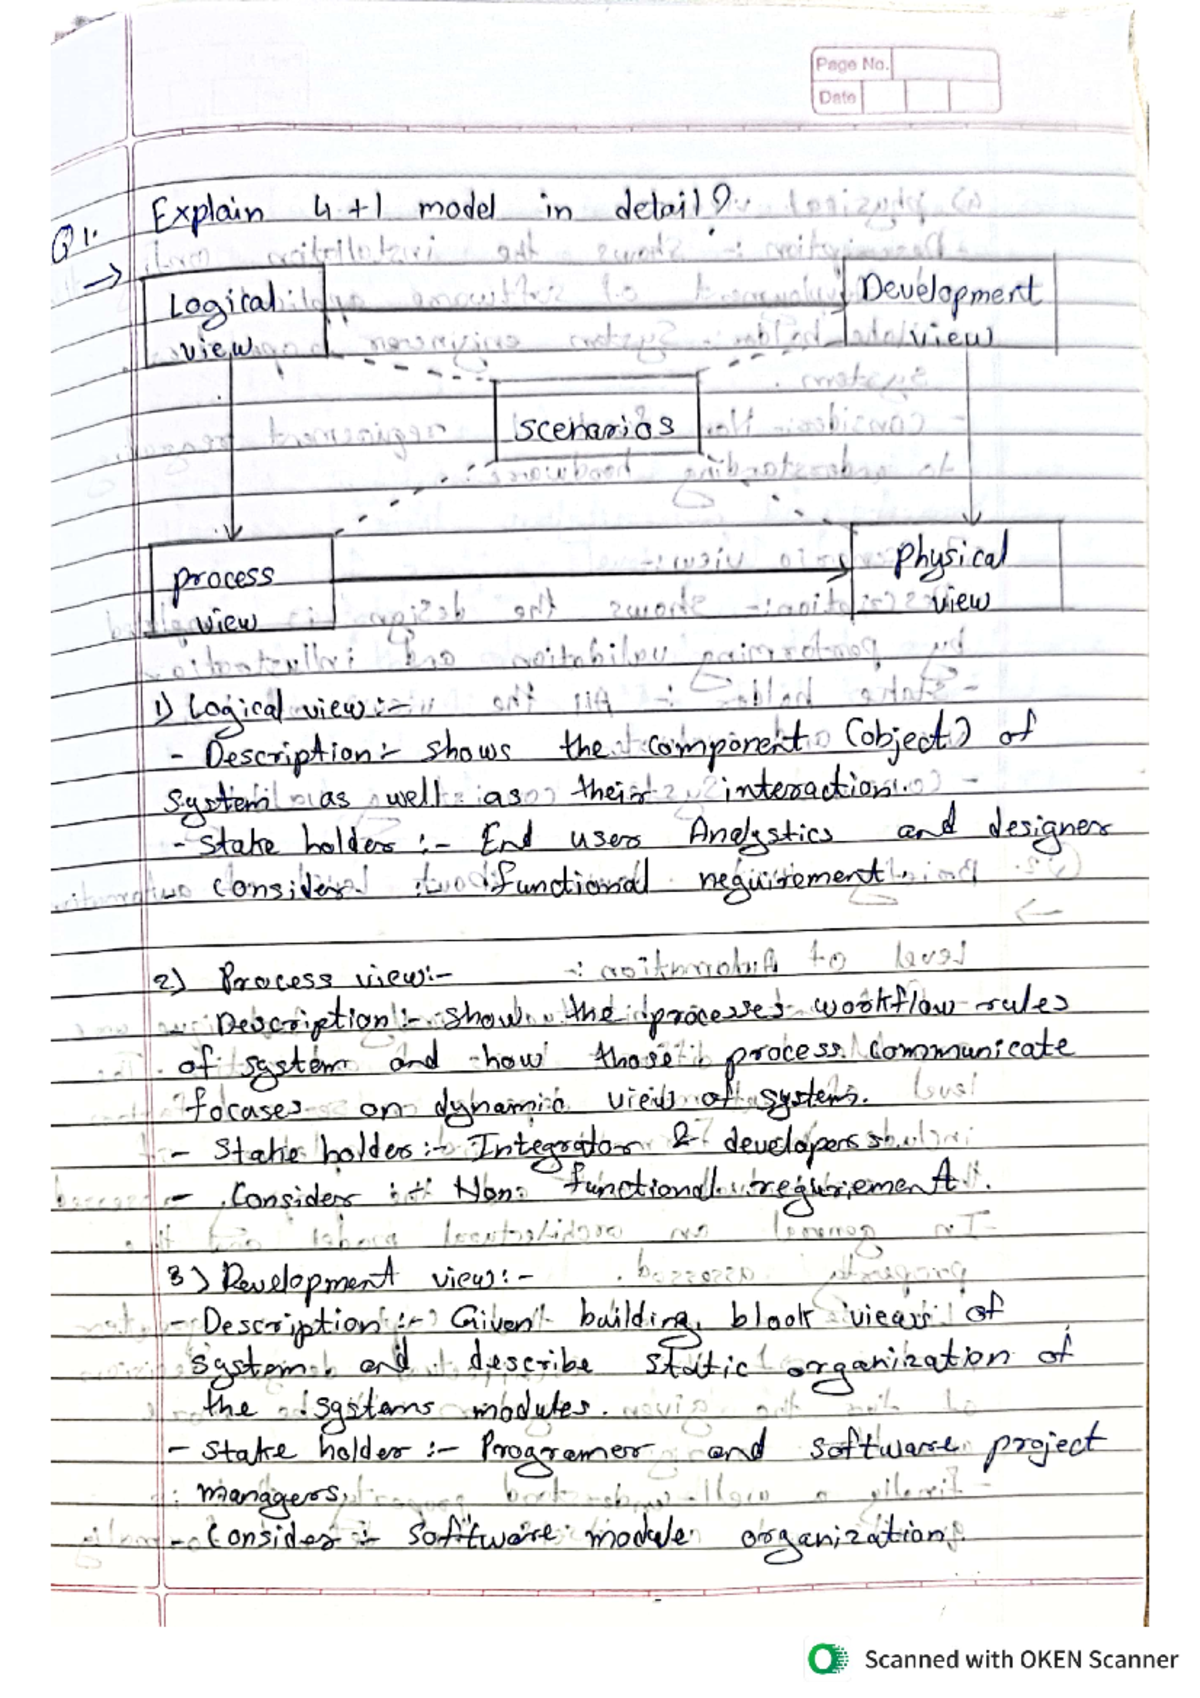 Page No.
Date
Q 1. Explain 4+1 model in detail?
→
Logical
view
Development
view
scenarios
process
view
physical
view
1) Logical view:-
- Description:- shows the component (object) of
system as well as their interaction.
- Stake holder :- End users Analystics and designer
consider :- functional requirement.
2) Process view:-
- Description:- show the processes workflow rules
of system and how those process communicate
focases on dynamic view of system.
- Stake holder:- Integrator & developers.
- Consider :- Non functional requriement.
3) Development view:-
- Description :- Given building block views of
system and describe static organization of
the systems modules.
- Stake holder :- Programer and software project
managers.
- Consider :- software module organization.
Scanned with OKEN Scanner